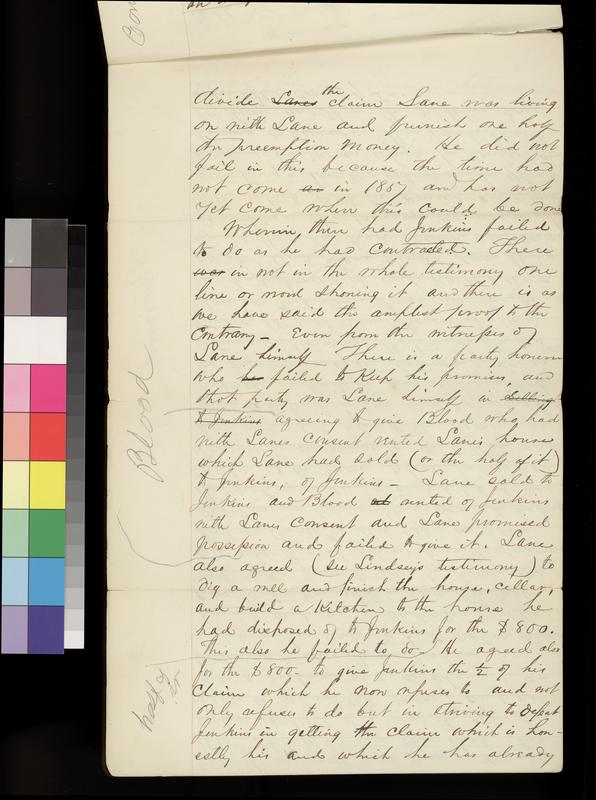 divide Lanes the claim Lane was living
on with Lane and furnish one half
the preemption money. He did not
fail in this because the time had
not come as in 1857 and has not
yet come when this could be done
Wherein, then had Jenkins failed
to do as he had contracted. There
was in not in the whole testimony one
line or word showing it and there is as
we have said the amplest proof to the
contrary - Even from the witnesses of
Lane himself There is a party however
who he failed to keep his promises, and
that party was Lane himself in selling
to Jenkins agreeing to give Blood who had
with Lanes consent rented Lanes house
which Lane had sold (or the half of it)
to Jenkins, of Jenkins - Lane sold to
Jenkins and Blood rented of Jenkins
with Lanes consent and Lane promised
possession and failed to give it. Lane
also agreed (see Lindseys testimony) to
dig a well and finish the house, cellar,
and build a kitchen to the house he
had disposed of to Jenkins for the $800.
This also he failed to do He agreed also
for the $800- to give Jenkins the ½ of his
claim which he now refuses to and not
only refuses to do but in striving to defeat
Jenkins in getting the claim which is hon-
estly his and which he has already
Blood
half of